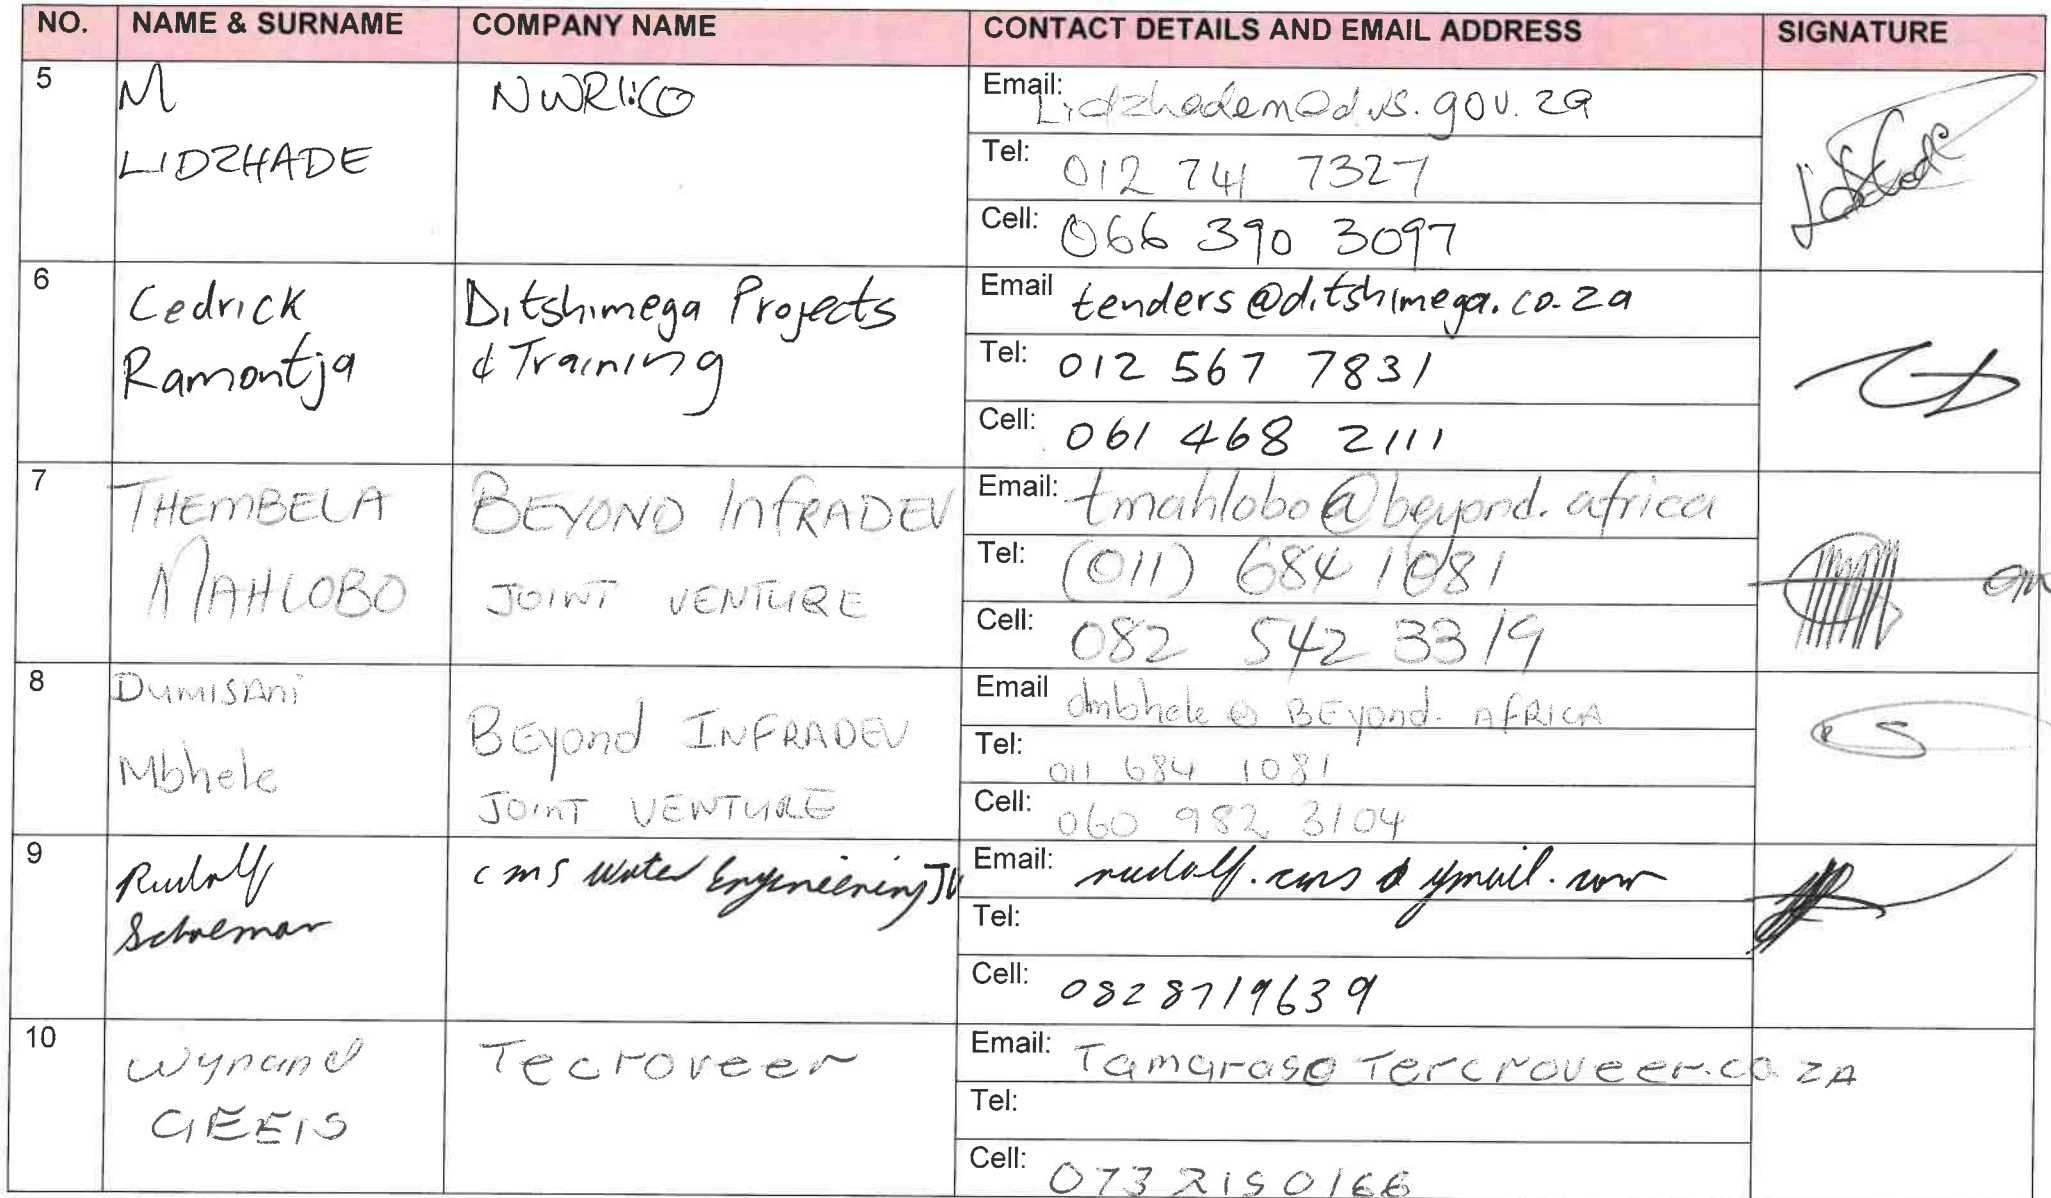 NO. NAME & SURNAME COMPANY NAME CONTACT DETAILS AND EMAIL ADDRESS SIGNATURE
5
M
LIDZHADE
Email:
Tel: 012 741 7327
Cell: 066 390 3097
6
Cedrick
Ramontja
Ditshimega Projects
& Training
Email tenders@ditshimega.co.za
Tel: 012 567 7831
Cell: 061 468 2111
7
THEMBELA
MAHLOBO
BEYOND INFRADEV
JOINT VENTURE
Email: tmahlobo@beyond.africa
Tel: (011) 684 1081
Cell: 082 542 3319
8
Dumisani
Mbhele
BEyond INFRADEV
JOINT VENTURE
Email dmbhele @ BEyond. AFRICA
Tel: 011 684 1081
Cell: 060 982 3104
9
Rudolf
Schoeman
cms Water Engineering JV
Email: rudolf.cms@ymail.com
Tel:
Cell: 0828719639
10
Wynand
GEEIS
Tecroveer
Email:
Tel:
Cell: 073 215 0166